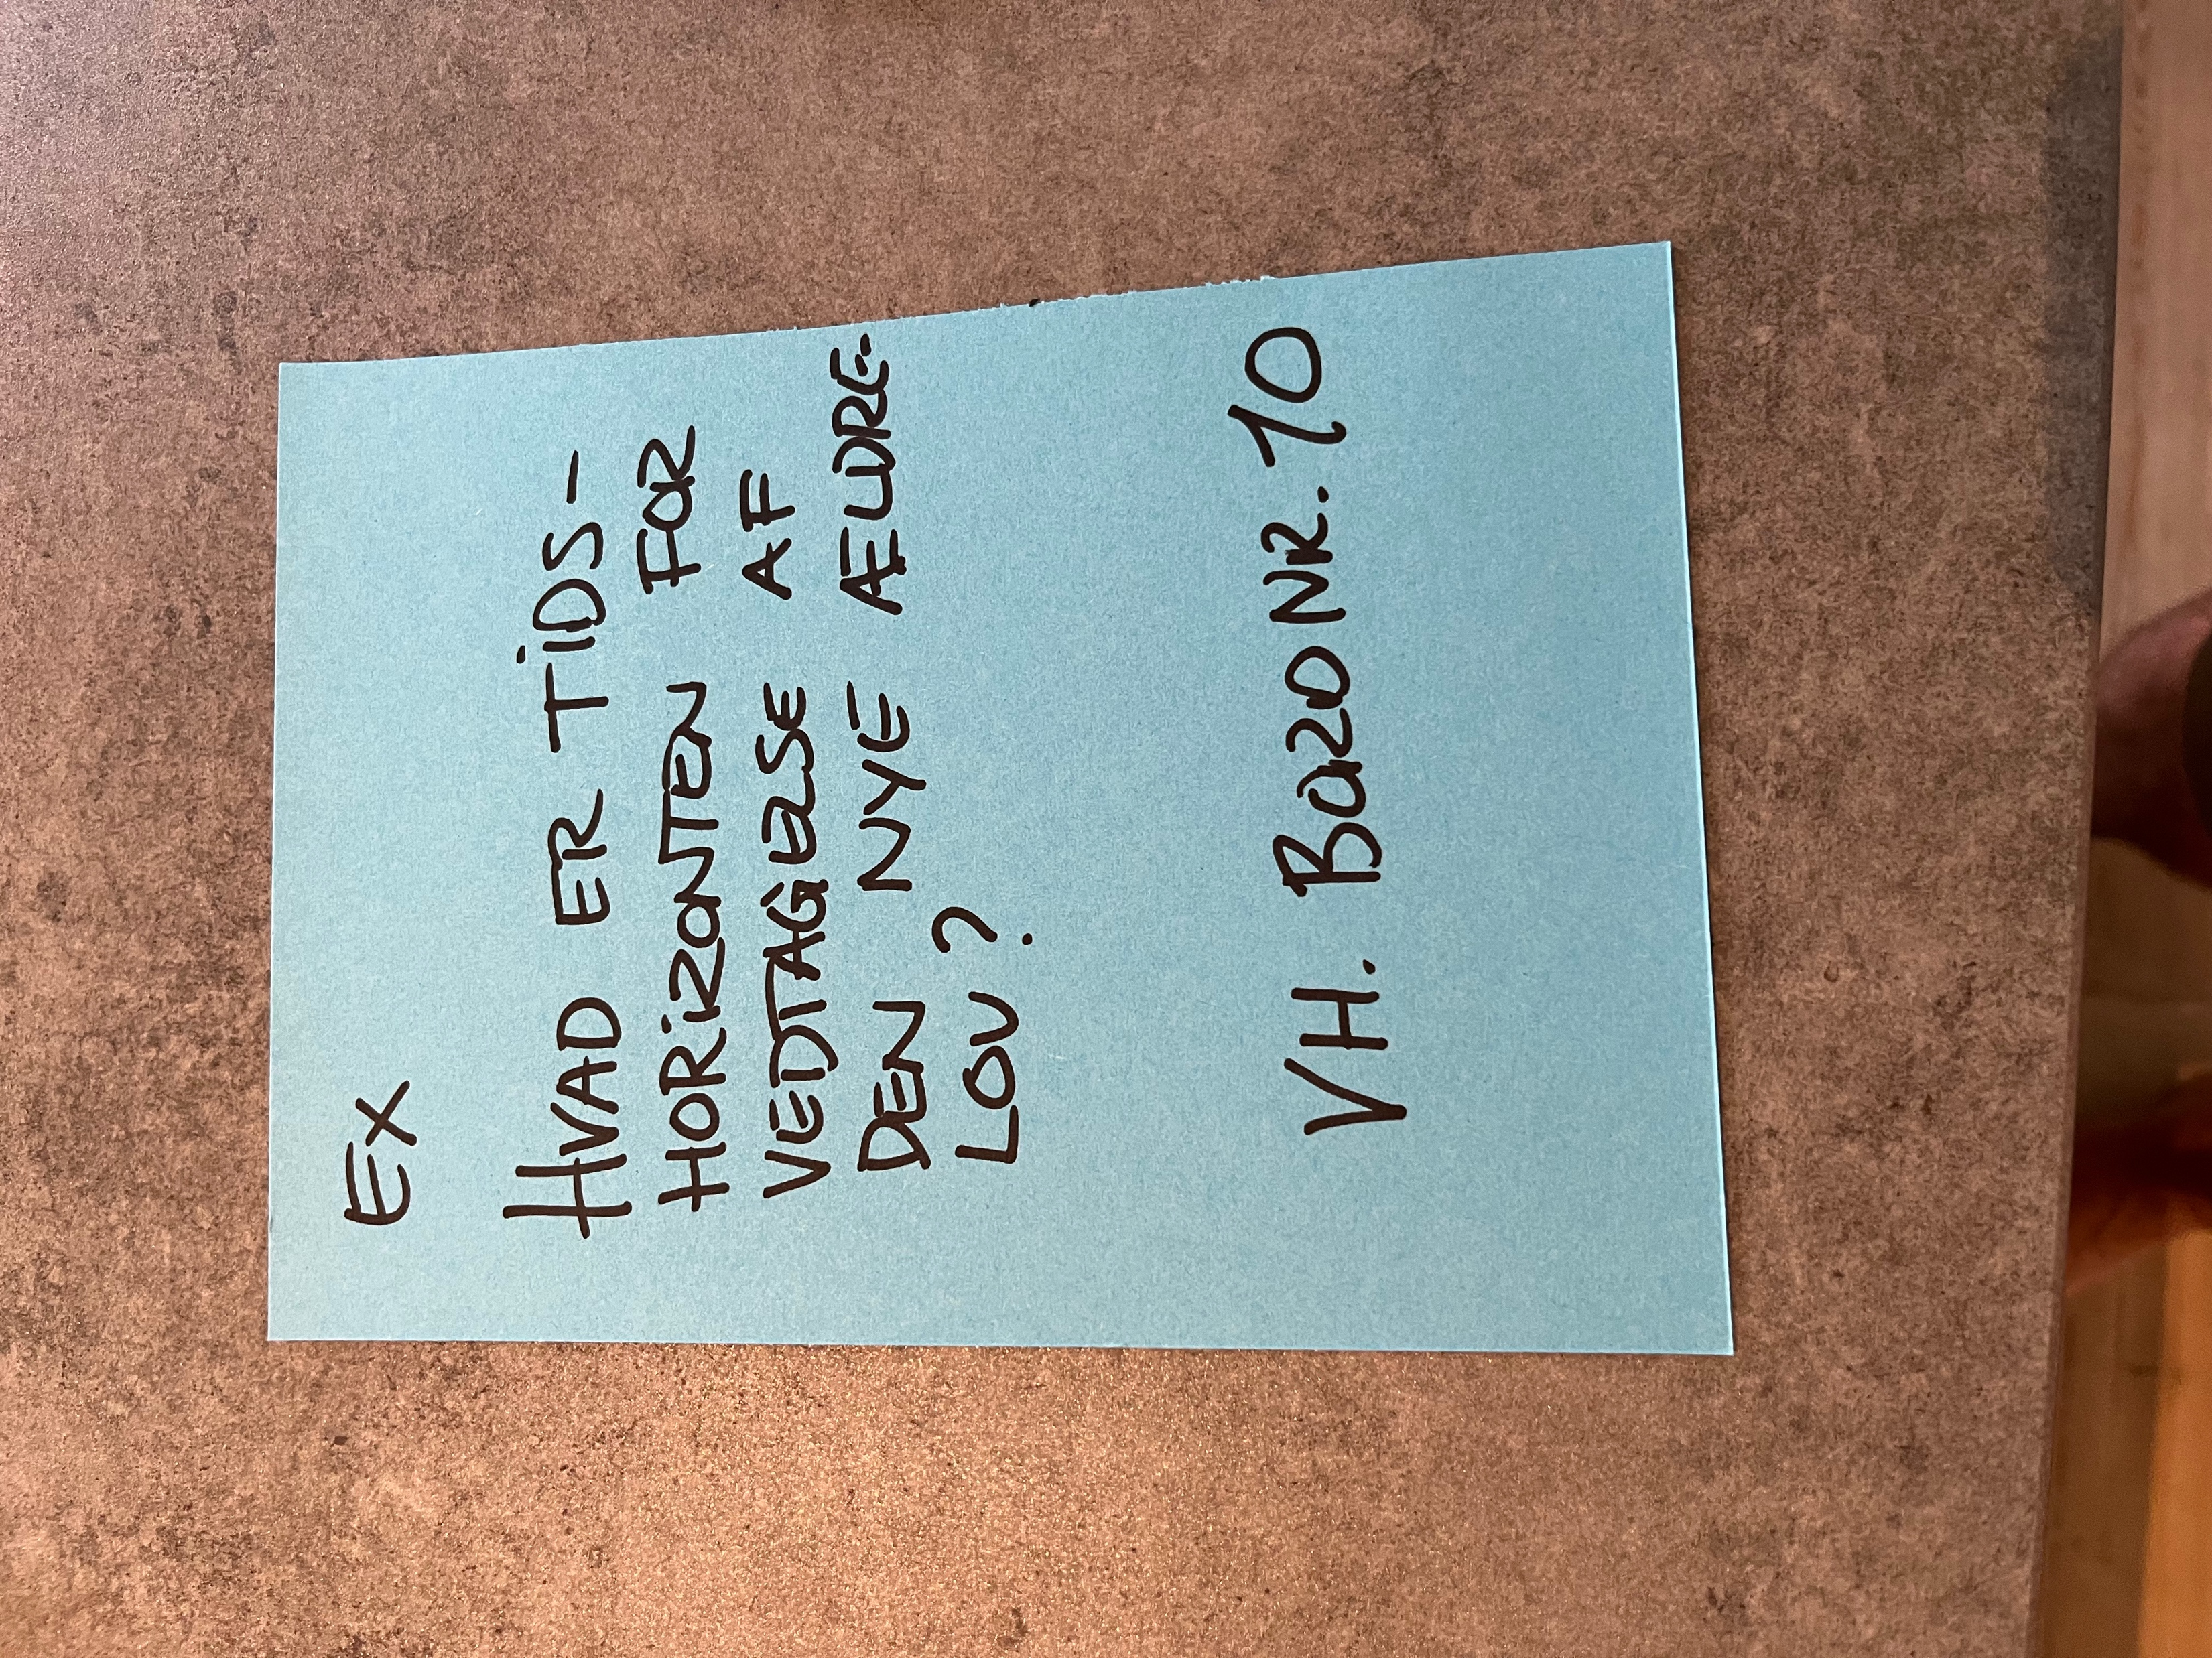 EX
HVAD ER TIDS-
HORIZONTEN FOR
VEDTAGELSE AF
DEN NYE ÆLDRE-
LOV?
VH. BORD NR. 10